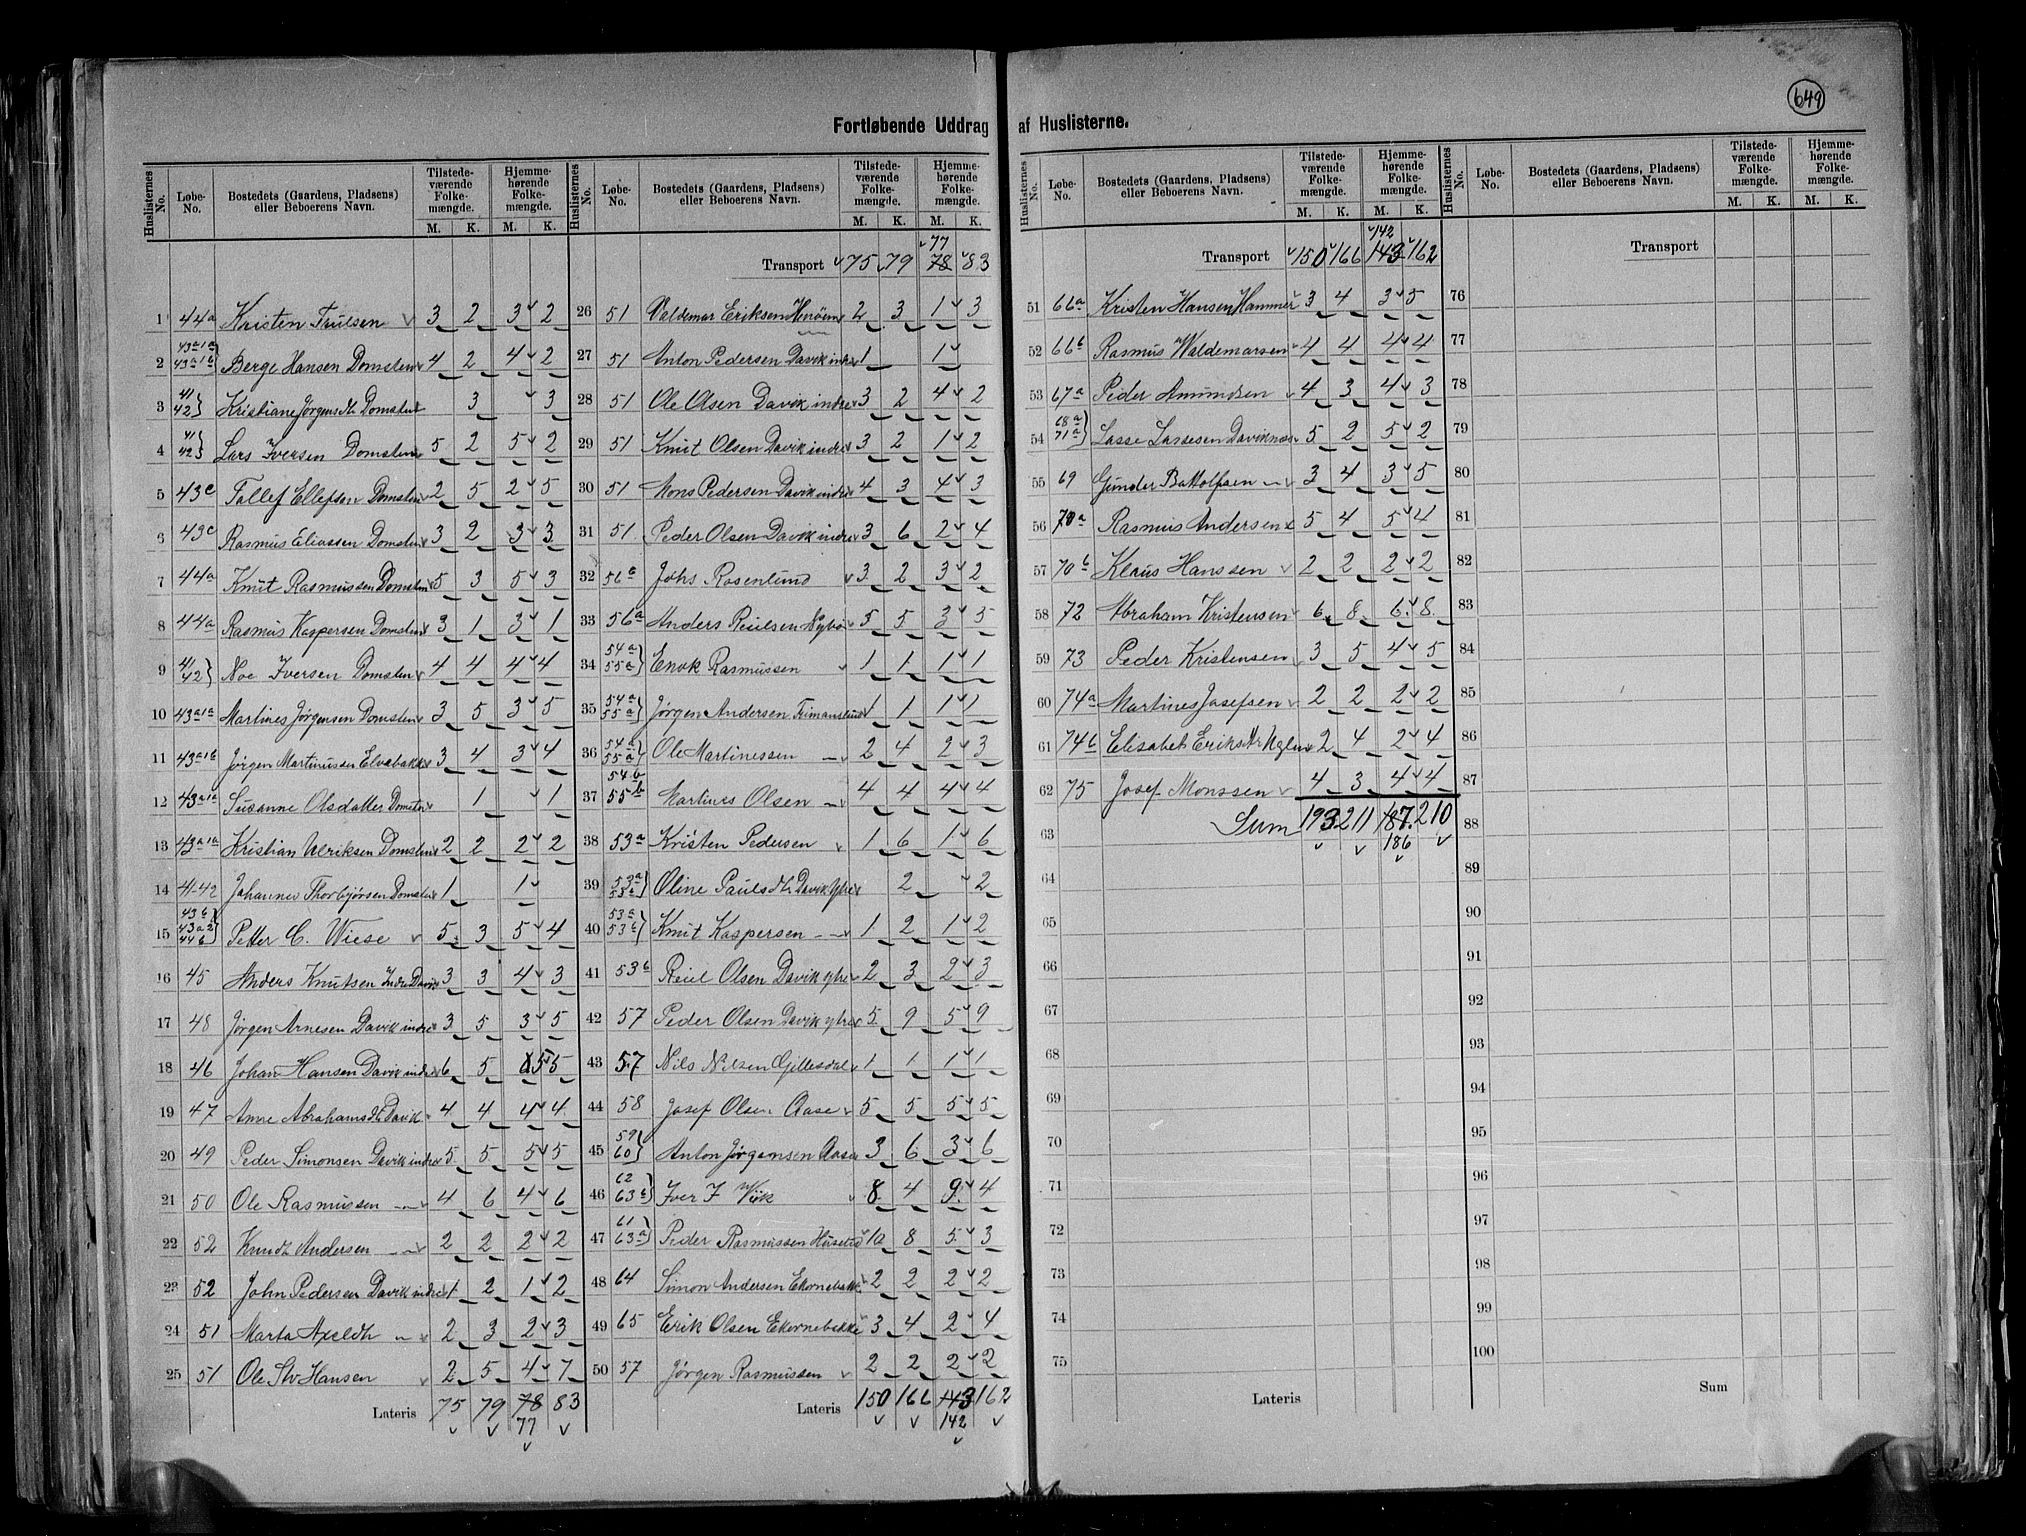 649
Fortløbende Uddrag af Huslisterne.
Huslisternes No. Løbe-No. Bostedets (Gaardens, Pladsens) eller Beboerens Navn. Tilstedeværende Folkemængde. M. K. Hjemmehørende Folkemængde. M. K.
1 44a Kristen Truelsen v 3 2 3 v 2
2 43a1a 43a1b } Berge Hansen Domsten v 4 2 4 v 2
3 41 42 } Kristiane Jørgensdt Domsten 3 v 3
4 41 42 } Lars Iversen Domsten v 5 2 5 v 2
5 43c Tollef Ellefsen Domsten v 2 5 2 v 5
6 43c Rasmus Eliassen Domsten v 3 2 3 v 3
7 44a Knut Rasmussen Domsten v 5 3 5 v 3
8 44a Rasmus Kaspersen Domsten v 3 1 3 v 1
9 41 42 } Noe Iversen Domsten v 4 4 4 v 4
10 43a1a Martines Jørgensen Domsten v 3 5 3 v 5
11 43a1b Jørgen Martinussen Elvebakk v 3 4 3 v 4
12 43a1a Susanne Olsdatter Domstn v 1 v 1
13 43a1a Kristian Ulriksen Domsten v 2 2 2 v 2
14 41-42 Johannes Thorbjørsen Domsten v 1 1 v
15 43b 43a2 44b } Petter C. Wiese v 5 3 5 v 4
16 45 Anders Knutsen Indre Davik v 3 3 4 v 3
17 48 Jørgen Arnesen Davik indre v 3 5 3 v 5
18 46 Johan Hansen Davik indre v 6 5 5 v 5
19 47 Anne Abrahamsdt Davik v 4 4 4 v 4
20 49 Peder Simonsen Davik indre v 5 5 5 v 5
21 50 Ole Rasmussen — v 4 6 4 v 6
22 52 Knudt Andersen — v 2 2 2 v 2
23 52 John Pedersen Davik indre v 1 2 1 v 2
24 51 Marta Axeldt — v 2 3 2 v 3
25 51 Ole Sv Hansen v 2 5 4 v 7
Lateris 75 79 78 83
v v 77 v v
Huslisternes No. Løbe-No. Bostedets (Gaardens, Pladsens) eller Beboerens Navn. Tilstedeværende Folkemængde. M. K. Hjemmehørende Folkemængde. M. K.
v 77
Transport v 75 79 78 v 83
26 51 Valdemar Eriksen v 2 3 1 v 3
27 51 Anton Pedersen Davik indre 1 1 v
28 51 Ole Olsen Davik indre v 3 2 4 v 2
29 51 Knut Olsen Davik indre v 3 2 1 v 2
30 51 Mons Pedersen Davik indre v 4 3 4 v 3
31 51 Peder Olsen Davik indre v 3 6 2 v 4
32 56b Johs Rosenlund v 3 2 3 v 2
33 56a Anders Reielsen Nybø v 5 5 3 v 5
34 54a 55a } Enok Rasmussen v 1 1 1 v 1
35 54a 55a } Jørgen Andersen 1 1 1 v 1
36 54a 55a } Ole Martinessen — v 2 4 2 v 3
37 54b 55b Martines Olsen — v 4 4 4 v 4
38 53a Kristen Pedersen v 1 6 1 v 6
39 53a 53b } Oline Paulsdt Davik Ytre v 2 v 2
40 53a 53b } Knut Kaspersen — v 1 2 1 v 2
41 53b Reiel Olsen Davik ytre v 2 3 2 v 3
42 57 Peder Olsen Davik ytre v 5 9 5 v 9
43 57 Nils Nilsen Gjillesdal v 1 1 1 v 1
44 58 Josef Olsen Aase v 5 5 5 v 5
45 59 60 } Anton Jørgensen Aase 3 6 3 v 6
46 62 63b } Iver J Vik v 8 4 9 v 4
47 61 63a } Peder Rasmussen Husetø v 10 8 5 v 3
48 64 Simon Andersen Ekornebakk v 2 2 2 v 2
49 65 Erik Olsen Ekornebakke v 3 4 2 v 4
50 57 Jørgen Rasmussen v 2 2 2 v 2
Lateris 150 166 143 162
v v 142 v v
Huslisternes No. Løbe-No. Bostedets (Gaardens, Pladsens) eller Beboerens Navn. Tilstedeværende Folkemængde. M. K. Hjemmehørende Folkemængde. M. K.
v 142
Transport v 150 v 166 143 v 162
51 66a Kristen Hansen Hammer v 3 4 3 v 5
52 66b Rasmus Waldemarsen v 4 4 4 v 4
53 67a Peder Amundsen v 4 3 4 v 3
54 68a 71a } Lasse Lassesen Daviknes v 5 2 5 v 2
55 69 Gunder Battolfsen — v 3 4 3 v 5
56 70a Rasmus Andersen v 5 4 5 v 4
57 70b Klaus Hanssen v 2 2 2 v 2
58 72 Abraham Kristensen v 6 8 6 v 8
59 73 Peder Kristensen v 3 5 4 v 5
60 74a Martines Josefsen v 2 2 2 v 2
61 74b Elisabet Eriksdt v 2 4 2 v 4
62 75 Josef Monssen v 4 3 4 v 4
63 Sum 193 211 187 210
v v 186 v v
64
65
66
67
68
69
70
71
72
73
74
75
Lateris
Huslisternes No. Løbe-No. Bostedets (Gaardens, Pladsens) eller Beboerens Navn. Tilstedeværende Folkemængde. M. K. Hjemmehørende Folkemængde. M. K.
Transport
76
77
78
79
80
81
82
83
84
85
86
87
88
89
90
91
92
93
94
95
96
97
98
99
100
Sum